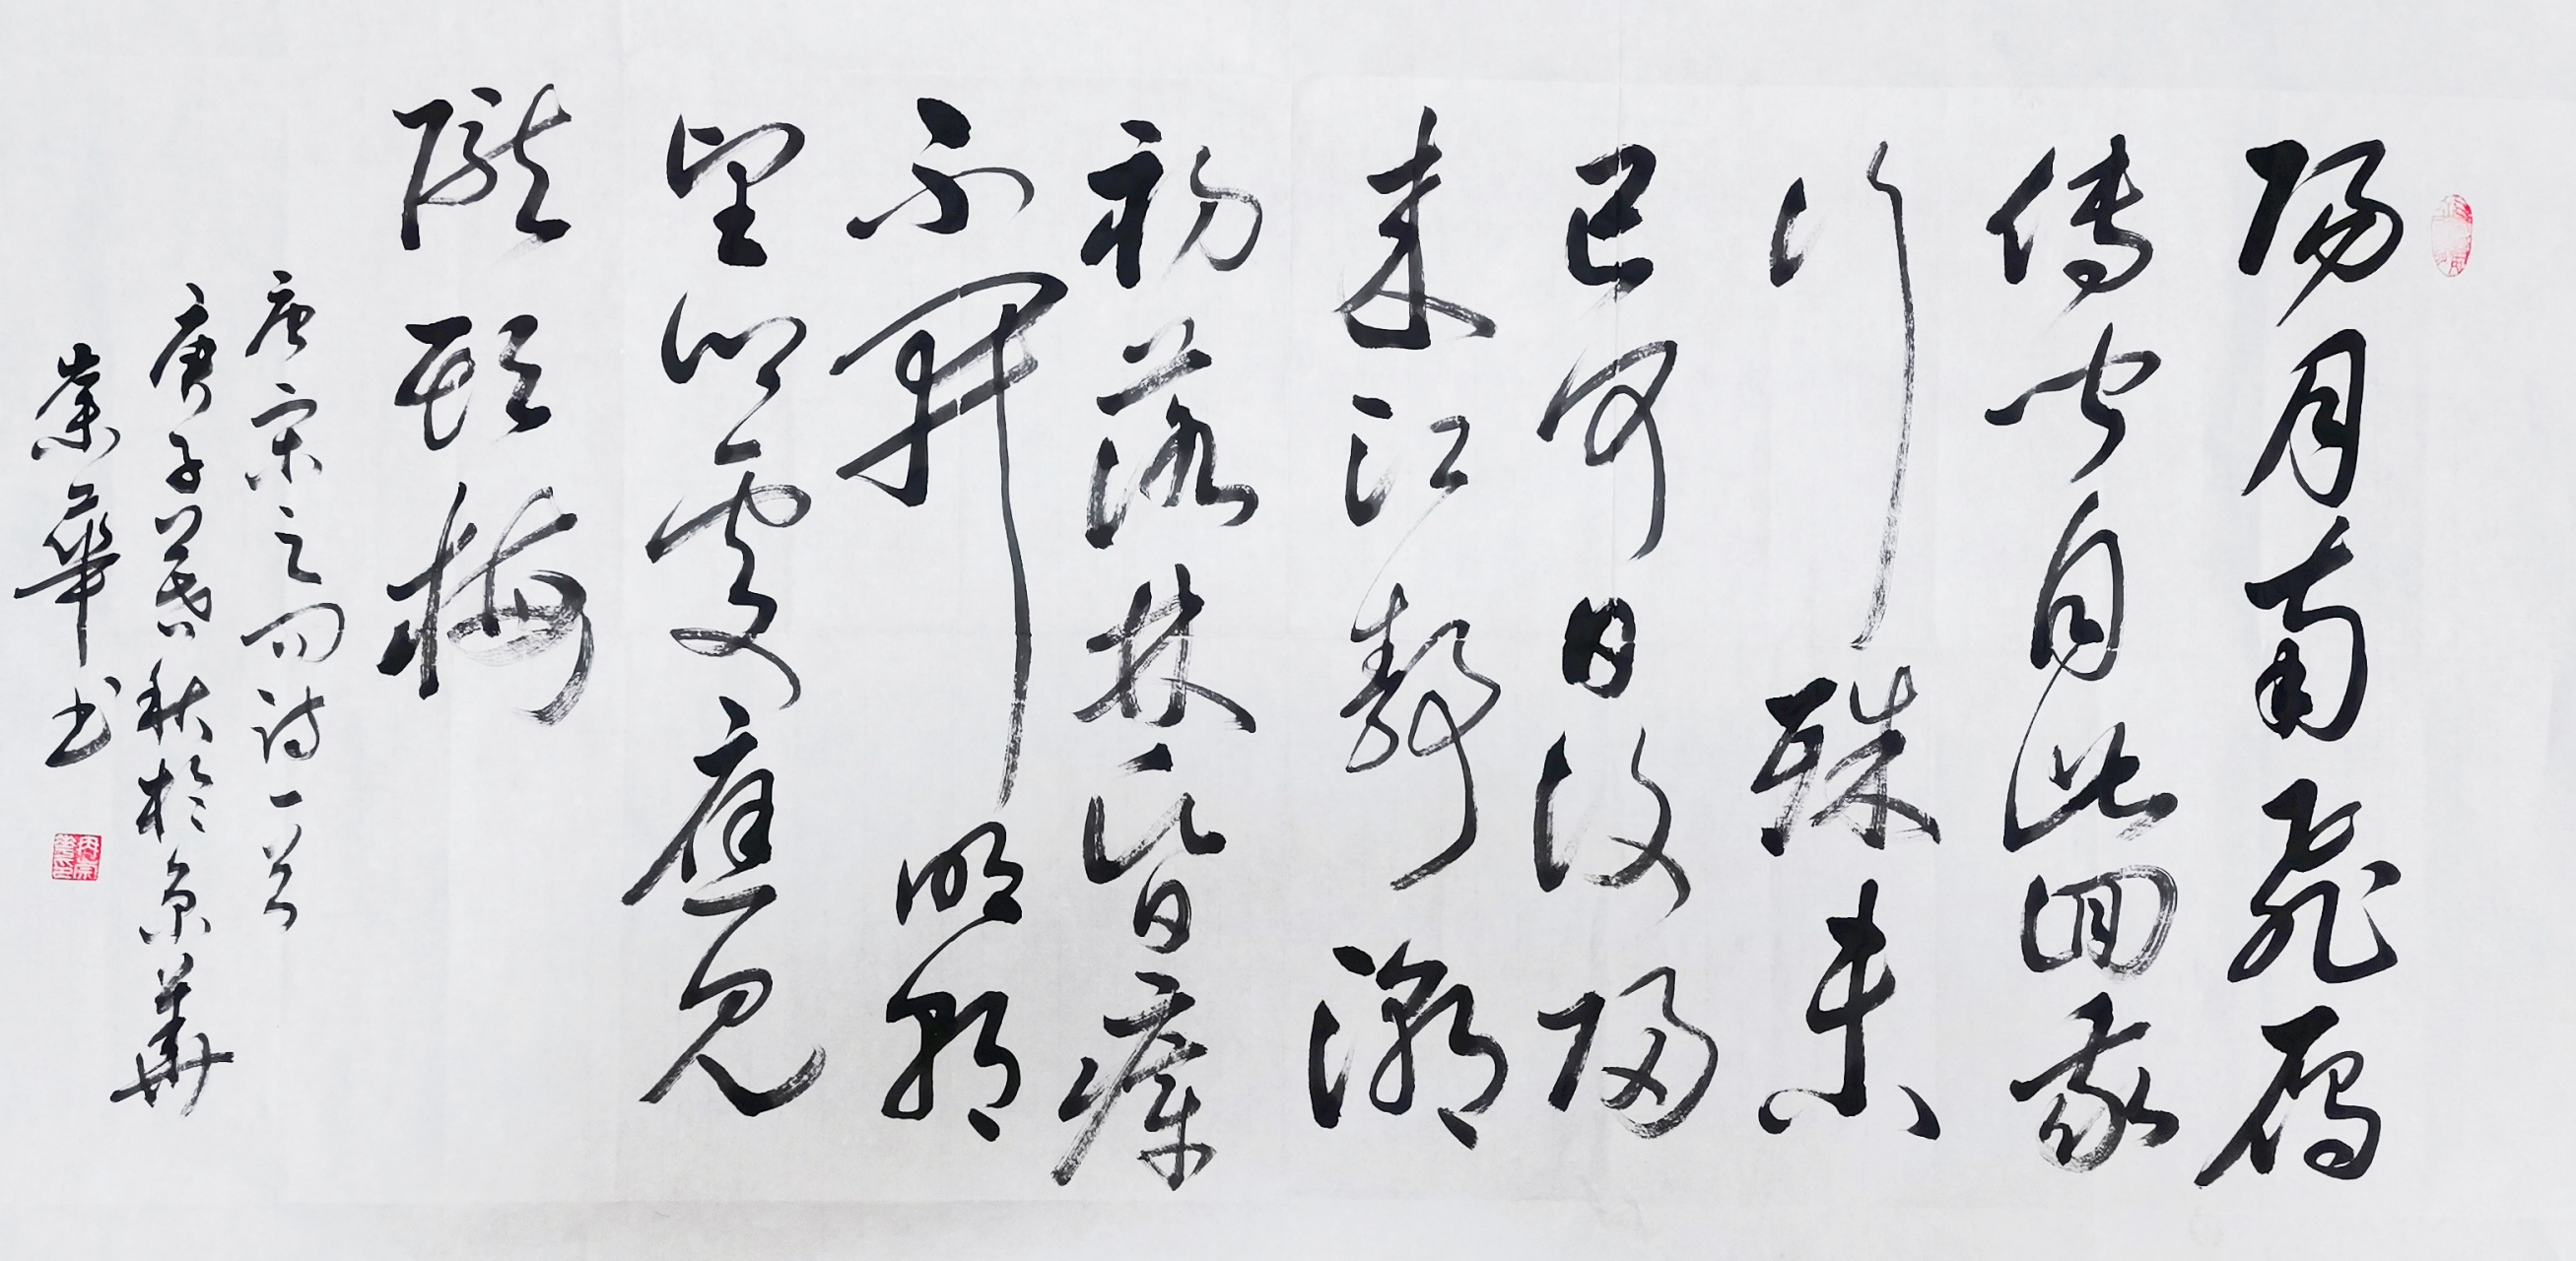 陽月南飛雁
傳聞自此回我
行殊未
已何日復歸
来江静潮
初落林昏瘴
不開明朝
望鄉處應見
隴頭梅
唐宋之问詩一首
庚子暮秋於京華
華书